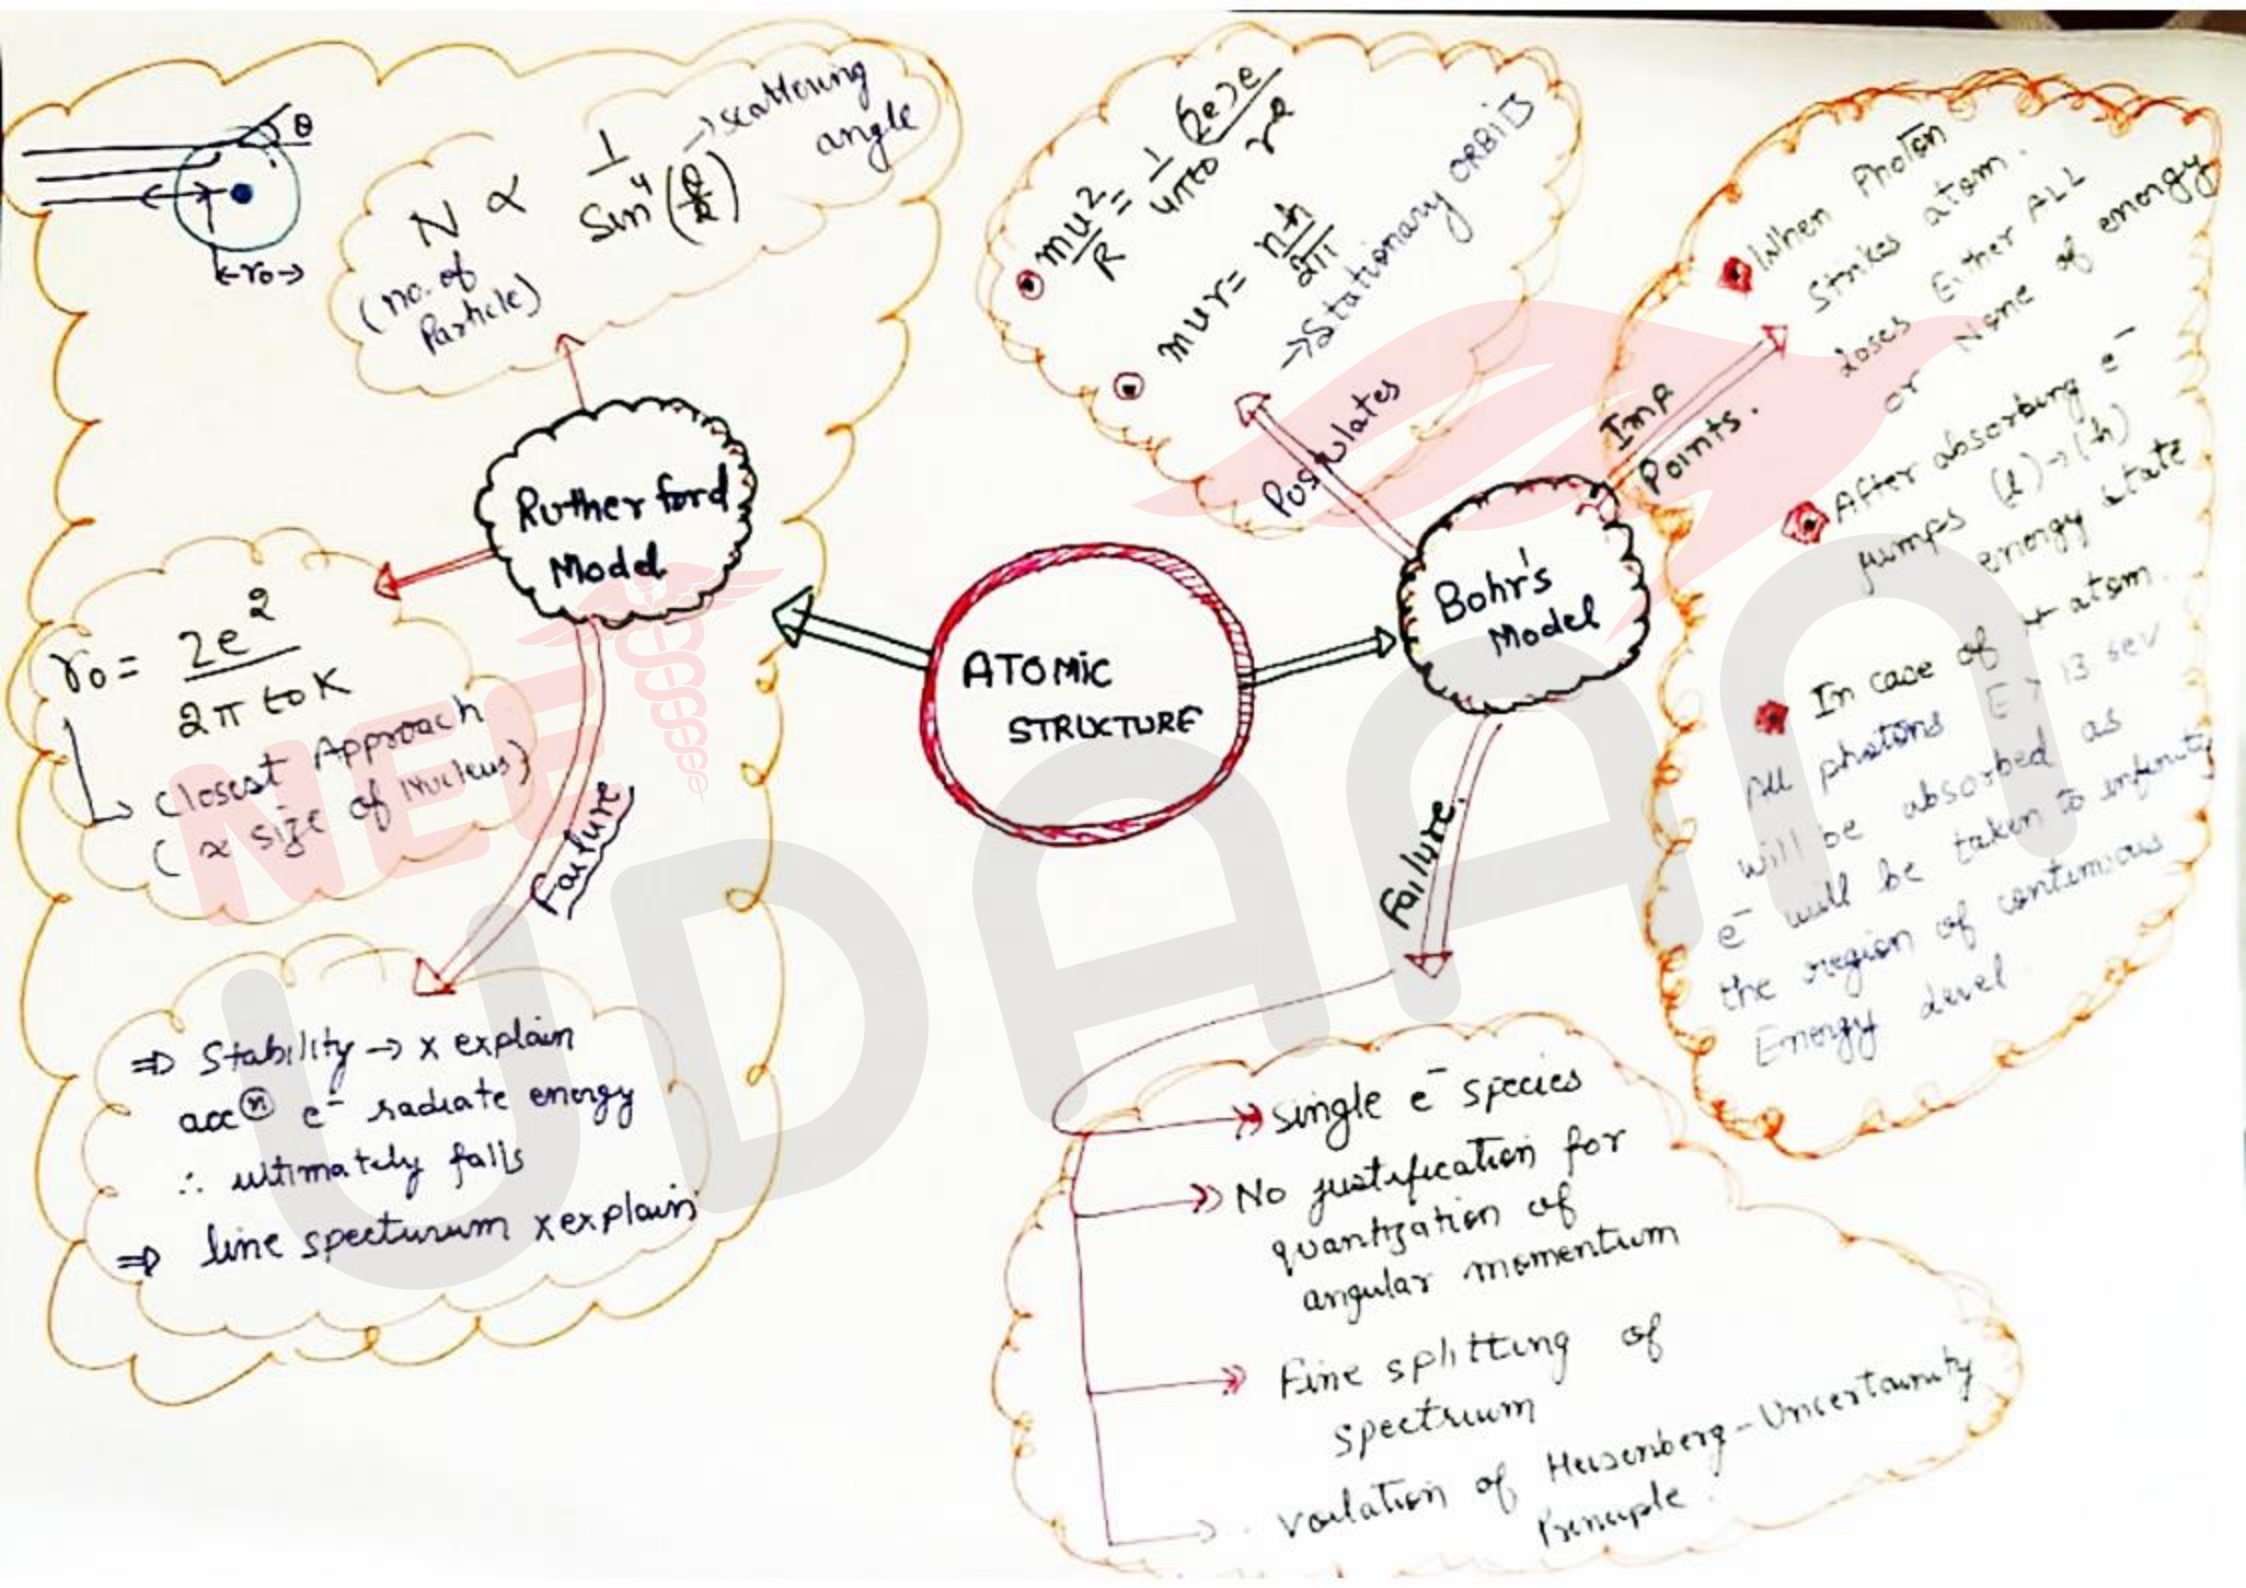 θ
←r₀→
N ∝ 1/Sin⁴(θ/2)
→ scattering
angle
(no. of
Particle)
Rutherford
Model
r₀ = 2e²/2π ε0 K
↳ closest Approach
(≈ size of Nucleus)
Failure
⇒ Stability → x explain
accⓝ e⁻ radiate energy
∴ ultimately falls
⇒ line specturum x explain
ATOMIC
STRUCTURE
mv²/R = 1/4πε0 (Ze)e/r²
mvr = nh/2π
→ Stationary ORBITS
Postulates
Bohr's
Model
Imp
Points.
When Photon
Strikes atom.
loses Either ALL
or None of energy
After absorbing e⁻
jumps (l) → (h)
energy state
In case of H atom.
All photons E > 13.6ev
will be absorbed as
e⁻ will be taken to infinity
the region of continuous
Energy level.
Failure.
single e⁻ species
No justification for
quantization of
angular momentum
Fine splitting of
spectrum
Voilation of Heisenberg-Uncertainity
Principle.
NEET
UDAAN